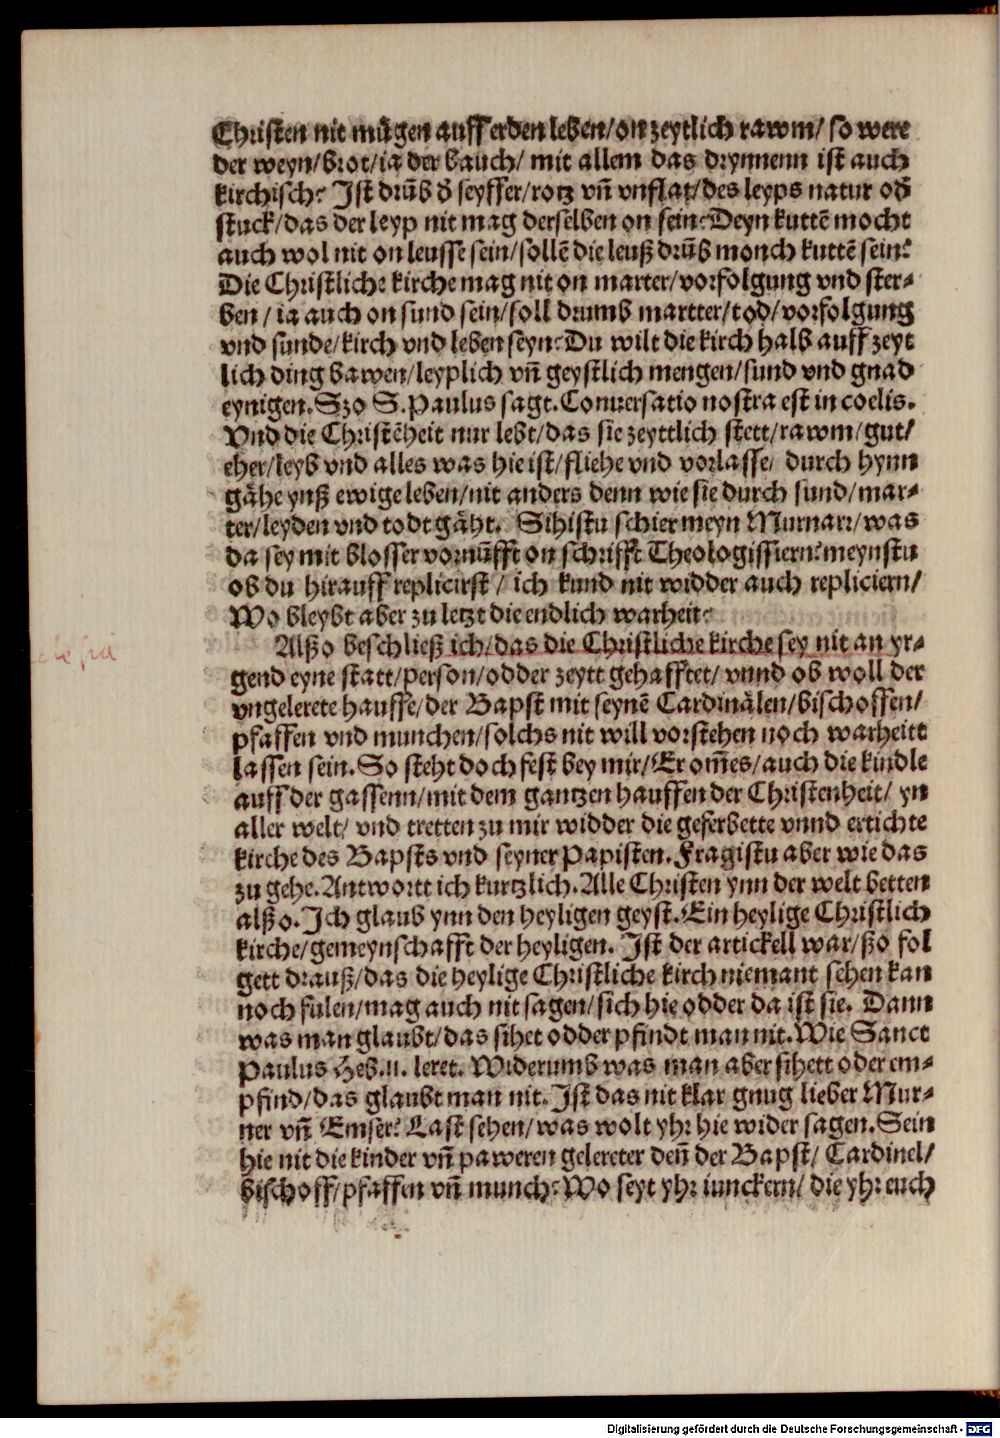 Christen nit mügen auff erden leben/on zeytlich rawm/ so were
der weyn/brot/ia der bauch/ mit allem das drynnenn ist auch
kirchisch? Ist drūb d̄ seyffer/rotz vñ vnflat/des leyps natur od̄
stuck/das der leyp nit mag derselben on sein? Deyn kuttē mocht
auch wol nit on leusse sein/sollē die leuß drūb monch kuttē sein?
Die Christliche kirche mag nit on marter/vorfolgung vnd ster⸗
ben/ ia auch on sund sein/soll drumb martter/tod/vorfolgung
vnd sunde/kirch vnd leben seyn? Du wilt die kirch halb auff zeyt
lich ding bawen/leyplich vñ geystlich mengen/sund vnd gnad
eynigen. Szo S. Paulus sagt. Conuersatio nostra est in coelis.
Vnd die Christēheit nur lebt/das sie zeyttlich stett/rawm/gut/
eher/leyb vnd alles was hie ist/fliehe vnd vorlasse/ durch hynn
gåhe ynß ewige leben/nit anders denn wie sie durch sund/mar⸗
ter/leyden vnd todt gåht. Sihistu schier meyn Murnarr/was
da sey mit blosser vornūfft on schrifft Theologissiern? meynstu
ob du hirauff replicirst/ ich kund nit widder auch repliciern/
Wo bleybt aber zu letzt die endlich warheit?
Alßo beschließ ich/das die Christliche kirche sey nit an yr⸗
gend eyne statt/person/odder zeytt gehafftet/ vnnd ob woll der
vngelerete hauffe/der Bapst mit seynē Cardinålen/bischoffen/
pfaffen vnd munchen/solchs nit will vorstehen noch warheitt
lassen sein. So steht doch fest bey mir/Er om̄es/auch die kindle
auff der gassenn/mit dem gantzen hauffen der Christenheit/ yn
aller welt/ vnd tretten zu mir widder die geferbette vnnd ertichte
kirche des Bapsts vnd seyner Papisten. Fragistu aber wie das
zu gehe. Antwortt ich kurtzlich. Alle Christen ynn der welt betten
alßo. Ich glaub ynn den heyligen geyst. Ein heylige Christlich
kirche/gemeynschafft der heyligen. Ist der artickell war/ßo fol
gett drauß/das die heylige Christliche kirch niemant sehen kan
noch fulen/mag auch nit sagen/sich hie odder da ist sie. Dann
was man glaubt/das sihet odder pfindt man nit. Wie Sanct
Paulus Heb. 11. leret. Widerumb was man aber sihett oder em⸗
pfind/das glaubt man nit. Ist das nit klar gnug lieber Mur⸗
ner vñ Emser? Last sehen/was wolt yhr hie wider sagen. Sein
hie nit die kinder vñ paweren gelereter deñ der Bapst/ Cardinel/
bischoff/pfaffen vñ munch? Wo seyt yhr iunckern/ die yhr euch
Digitalisierung gefördert durch die Deutsche Forschungsgemeinschaft - DFG